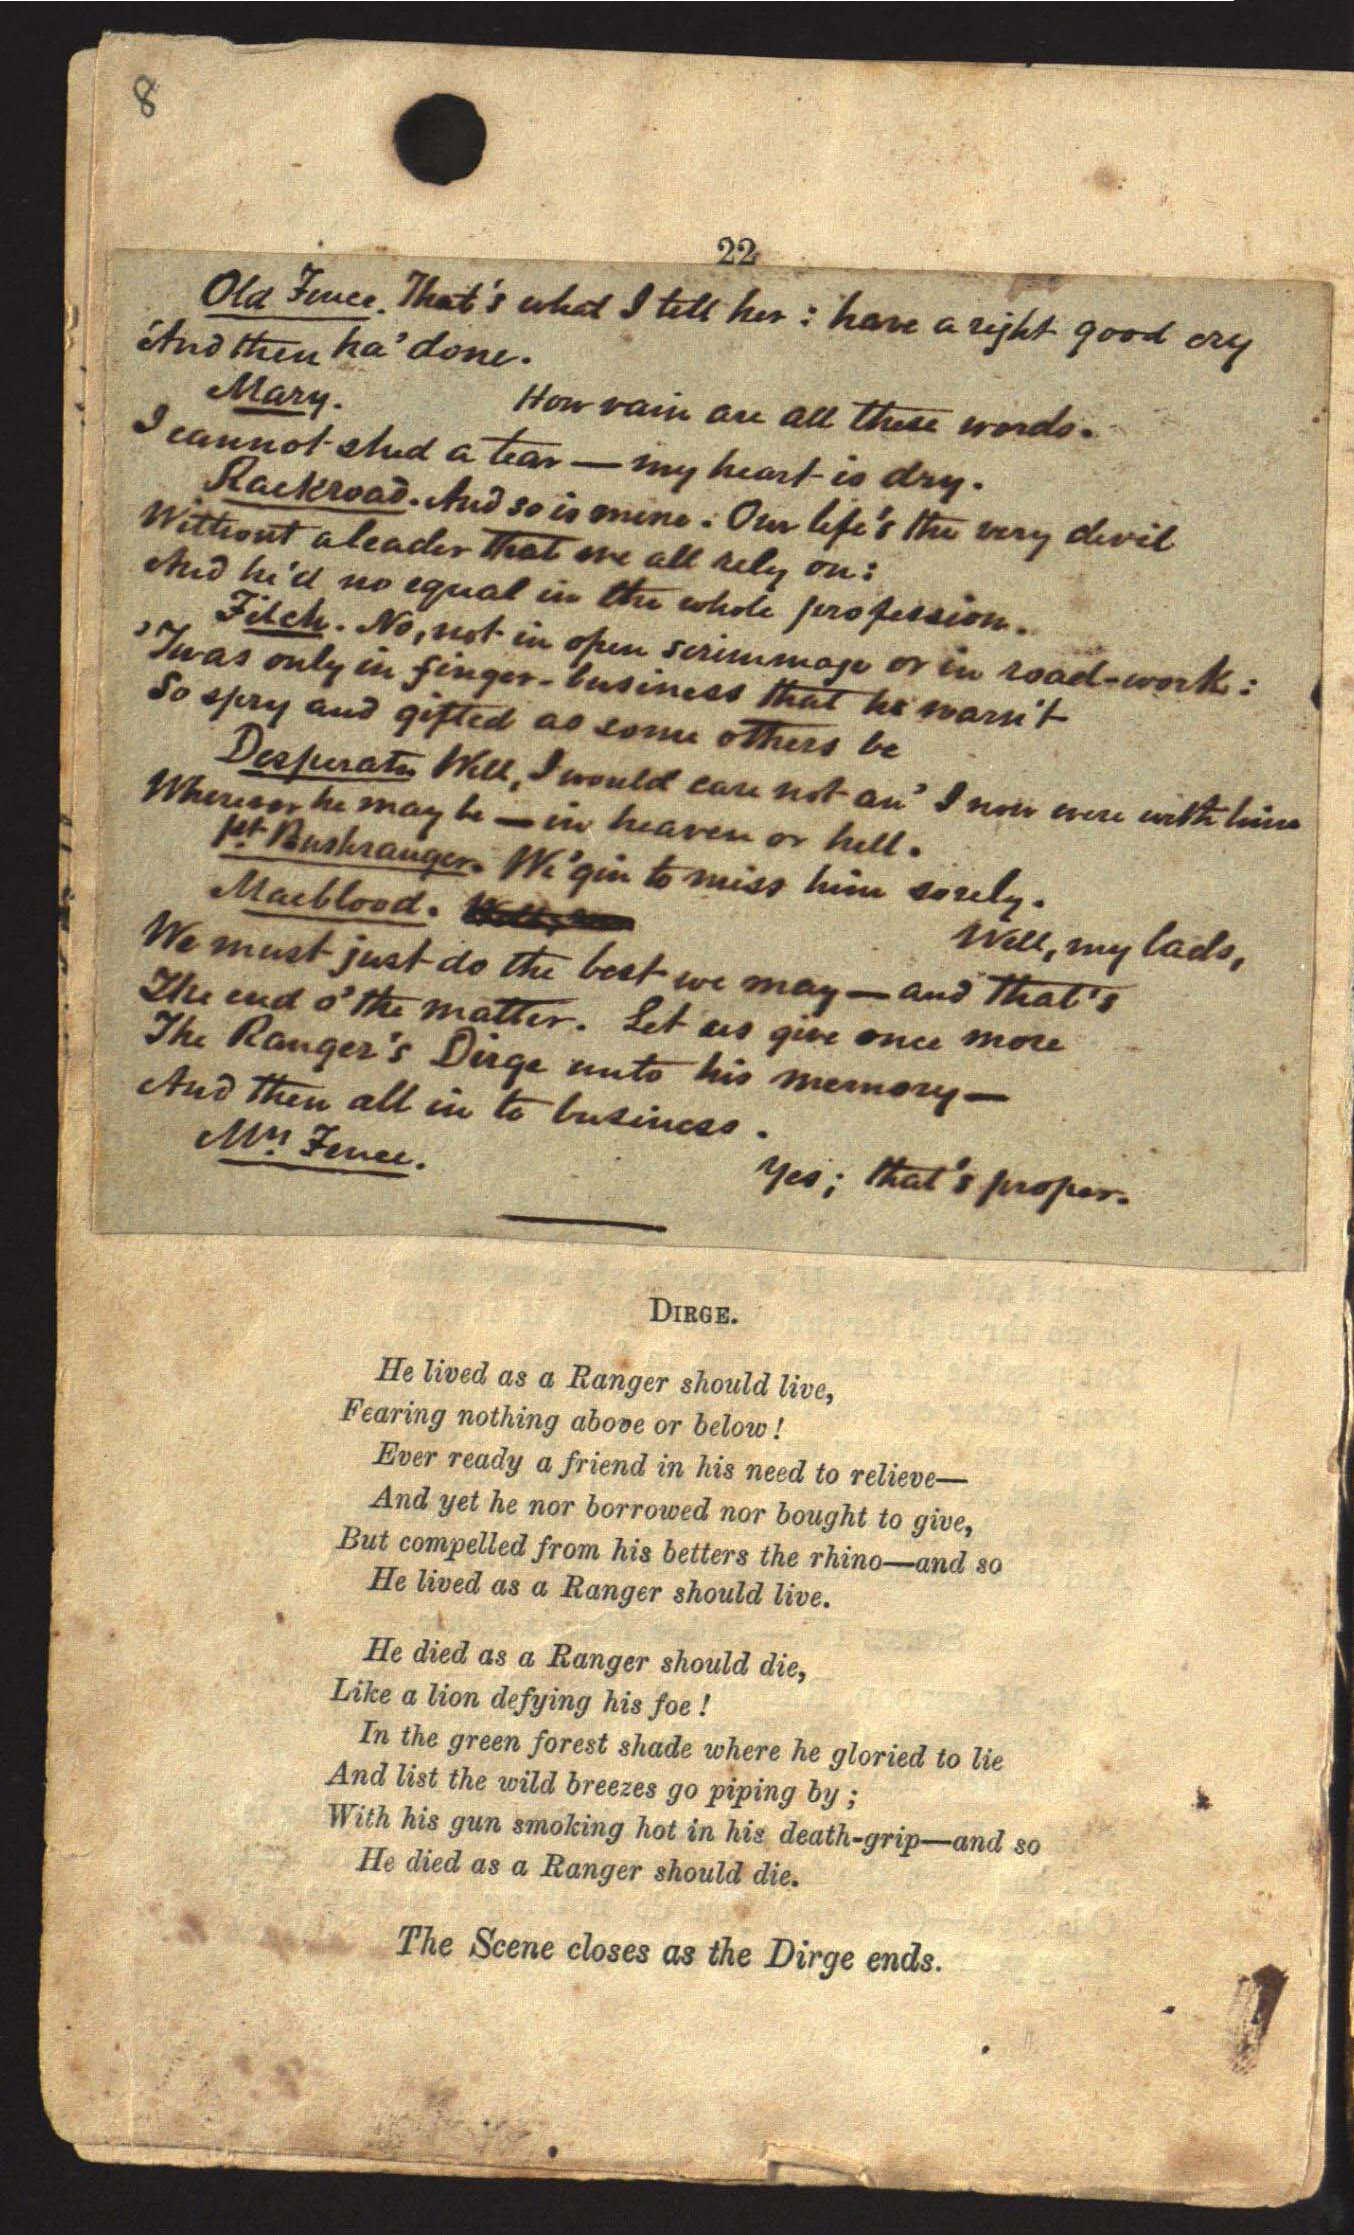 8
22
Old Fence. That's what I tell her: have a right good cry
And then ha' done.
Mary. How vain are all these words.
I cannot shed a tear — my heart is dry.
Rackroad. And so is mine. Our life's the very devil
Without a leader that we all rely on:
And he'd no equal in the whole profession.
Filch. No, not in open scrimmage or in road-work:
'Twas only in finger-business that he warn't
So spry and gifted as some others be
Desperate Well, I would care not an' I now were with him
Wherever he may be — in heaven or hell.
1st Bushranger. We 'gin to miss him sorely.
Macblood. Well, my lads,
We must just do the best we may — and that's
The end o' the matter. Let us give once more
The Ranger's Dirge unto his memory —
And then all in to business.
Mrs Fence. Yes; that's proper.
DIRGE.
He lived as a Ranger should live,
Fearing nothing above or below!
Ever ready a friend in his need to relieve—
And yet he nor borrowed nor bought to give,
But compelled from his betters the rhino—and so
He lived as a Ranger should live.
He died as a Ranger should die,
Like a lion defying his foe!
In the green forest shade where he gloried to lie
And list the wild breezes go piping by;
With his gun smoking hot in his death-grip—and so
He died as a Ranger should die.
The Scene closes as the Dirge ends.